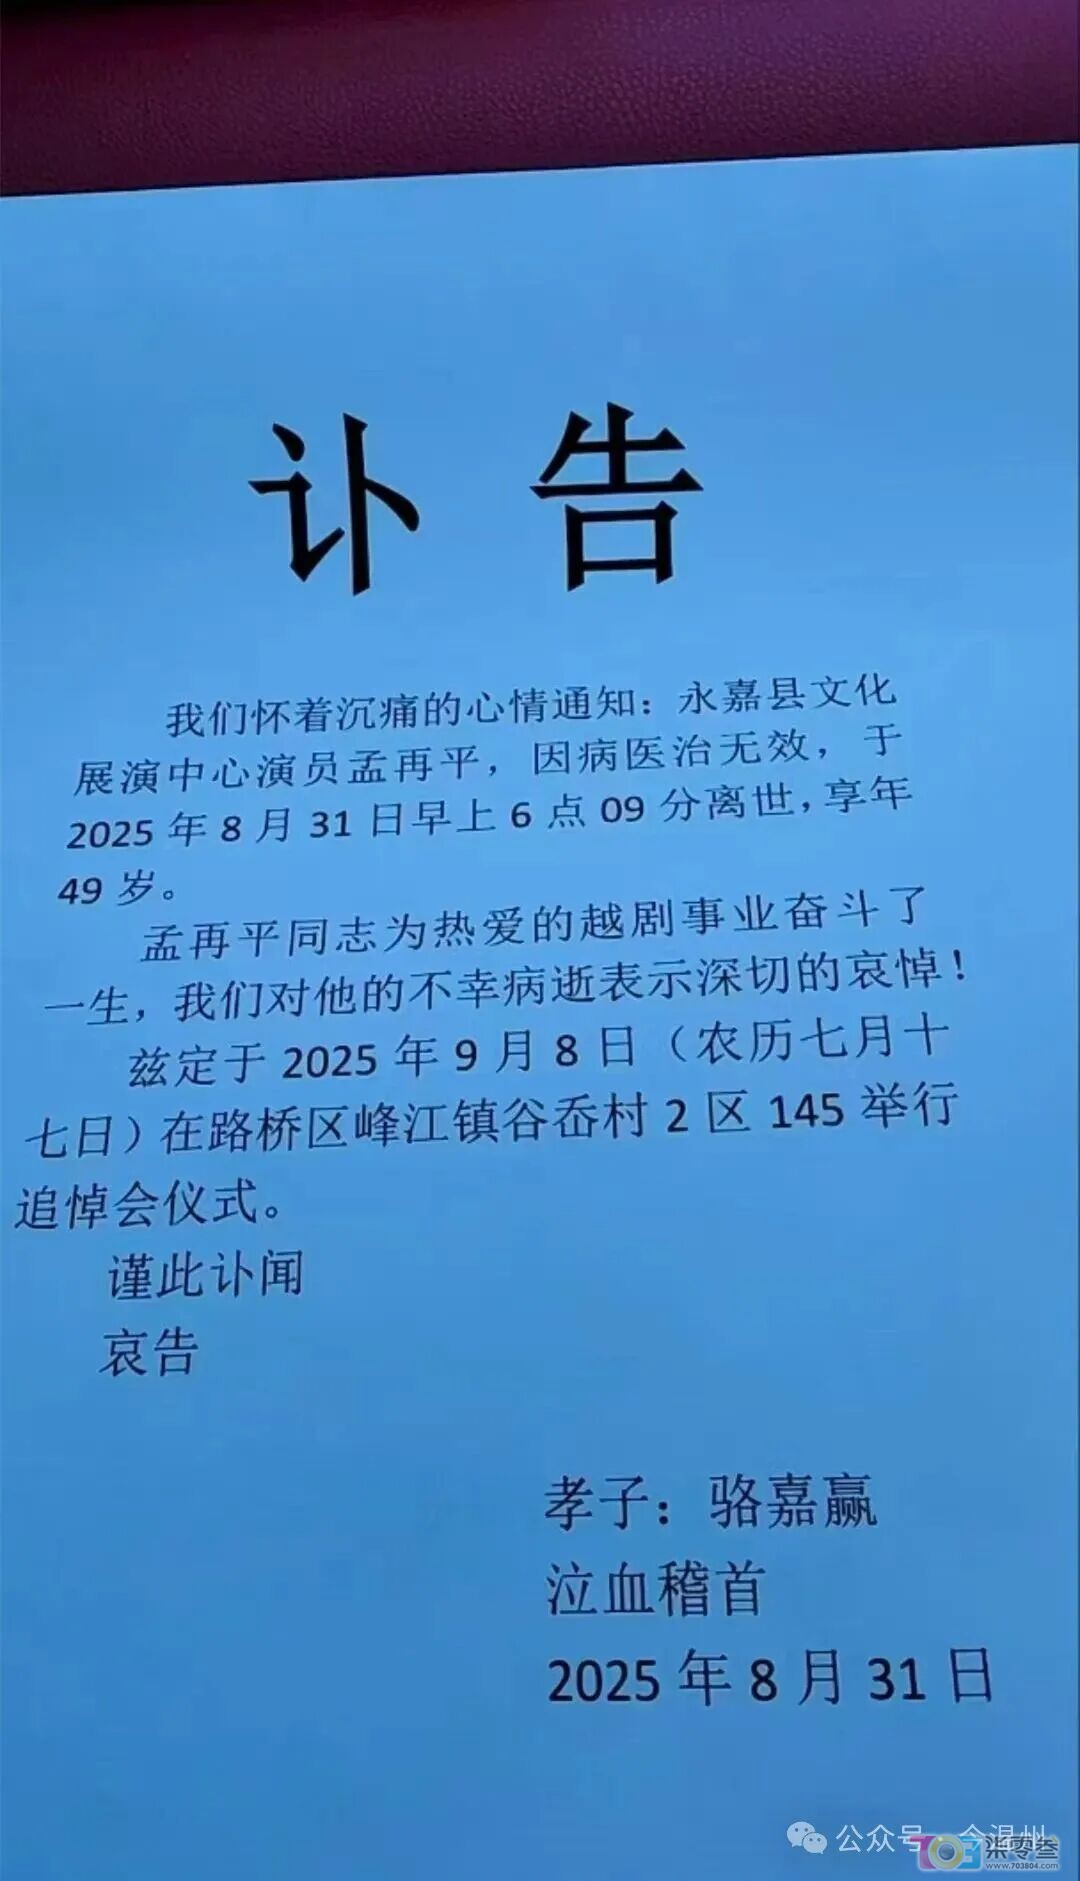 讣告
我们怀着沉痛的心情通知：永嘉县文化
展演中心演员孟再平，因病医治无效，于
2025年8月31日早上6点09分离世，享年
49岁。
孟再平同志为热爱的越剧事业奋斗了
一生，我们对他的不幸病逝表示深切的哀悼！
兹定于2025年9月8日（农历七月十
七日）在路桥区峰江镇谷岙村2区145举行
追悼会仪式。
谨此讣闻
哀告
孝子：骆嘉赢
泣血稽首
2025年8月31日
公众号·今温州
703
柒零叁
www.703804.com